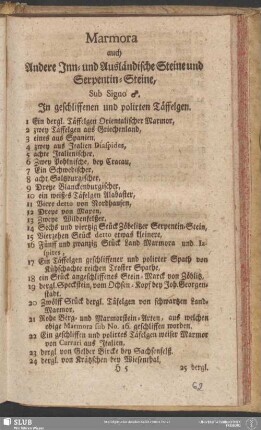 Marmora
auch
Andere Inn- und Ausländische Steine und
Serpentin-Steine,
Sub Signo ♂.
In geschliffenen und polirten Täffelgen.
1 Ein dergl. Täffelgen Orientalischer Marmor,
2 zwey Täffelgen aus Griechenland,
3 eines aus Spanien.
4 zwey aus Italien Diaspides,
5 achte Italienischer.
6 Zwey Pohlnische, bey Cracau,
7 Ein Schwedischer,
8 acht Saltzburgischer,
9 Dreye Blanckenburgischer,
10 ein weisses Täfelgen Alabaster,
11 Viere detto von Nordhausen,
12 Dreye von Maxen,
13 Zweye Wildenfelßer,
14 Sechs und viertzig Stück Zöbelitzer Serpentin-Stein,
15 Vierzehen Stück detto etwas kleinere.
16 Fünff und zwanzig Stück Land Marmora und Ia-
spides,
17 Ein Täffelgen geschliffener und polirter Spath von
Kühschachte reichen Troster Spathe,
18 ein Stück angeschliffenes Stein-Marck von Zöblitz,
19 dergl. Speckstein, vom Ochsen-Kopf bey Joh Georgen-
stadt.
20 Zwölff Stück dergl. Täfelgen von schwartzen Land-
Marmor.
21 Rohe Berg- und Marmorstein-Arten, aus welchen
obige Marmora sub No. 16. geschliffen worden.
22 Ein geschliffen und polirtes Täfelgen weiser Marmor
von Carrari aus Italien.
23 dergl. von Gelber Bircke bey Sachsenfelß.
24 dergl. von Krätzschen bey Wiesenthal,
25 dergl.
SLUB